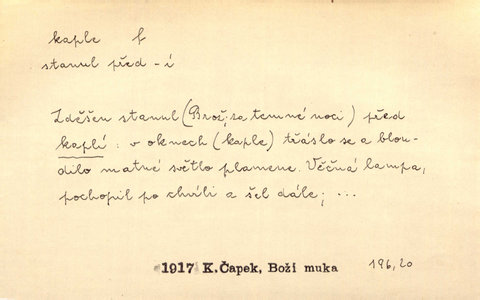 kaple f
stanul před -í
Zděšen stanul (Brož, za temné noci) před
kaplí : v oknech (kaple) třáslo se a blou-
dilo matné světlo plamene. Věčná lampa,
pochopil po chvíli a šel dále; ...
1917 K.Čapek, Boží muka 196,20